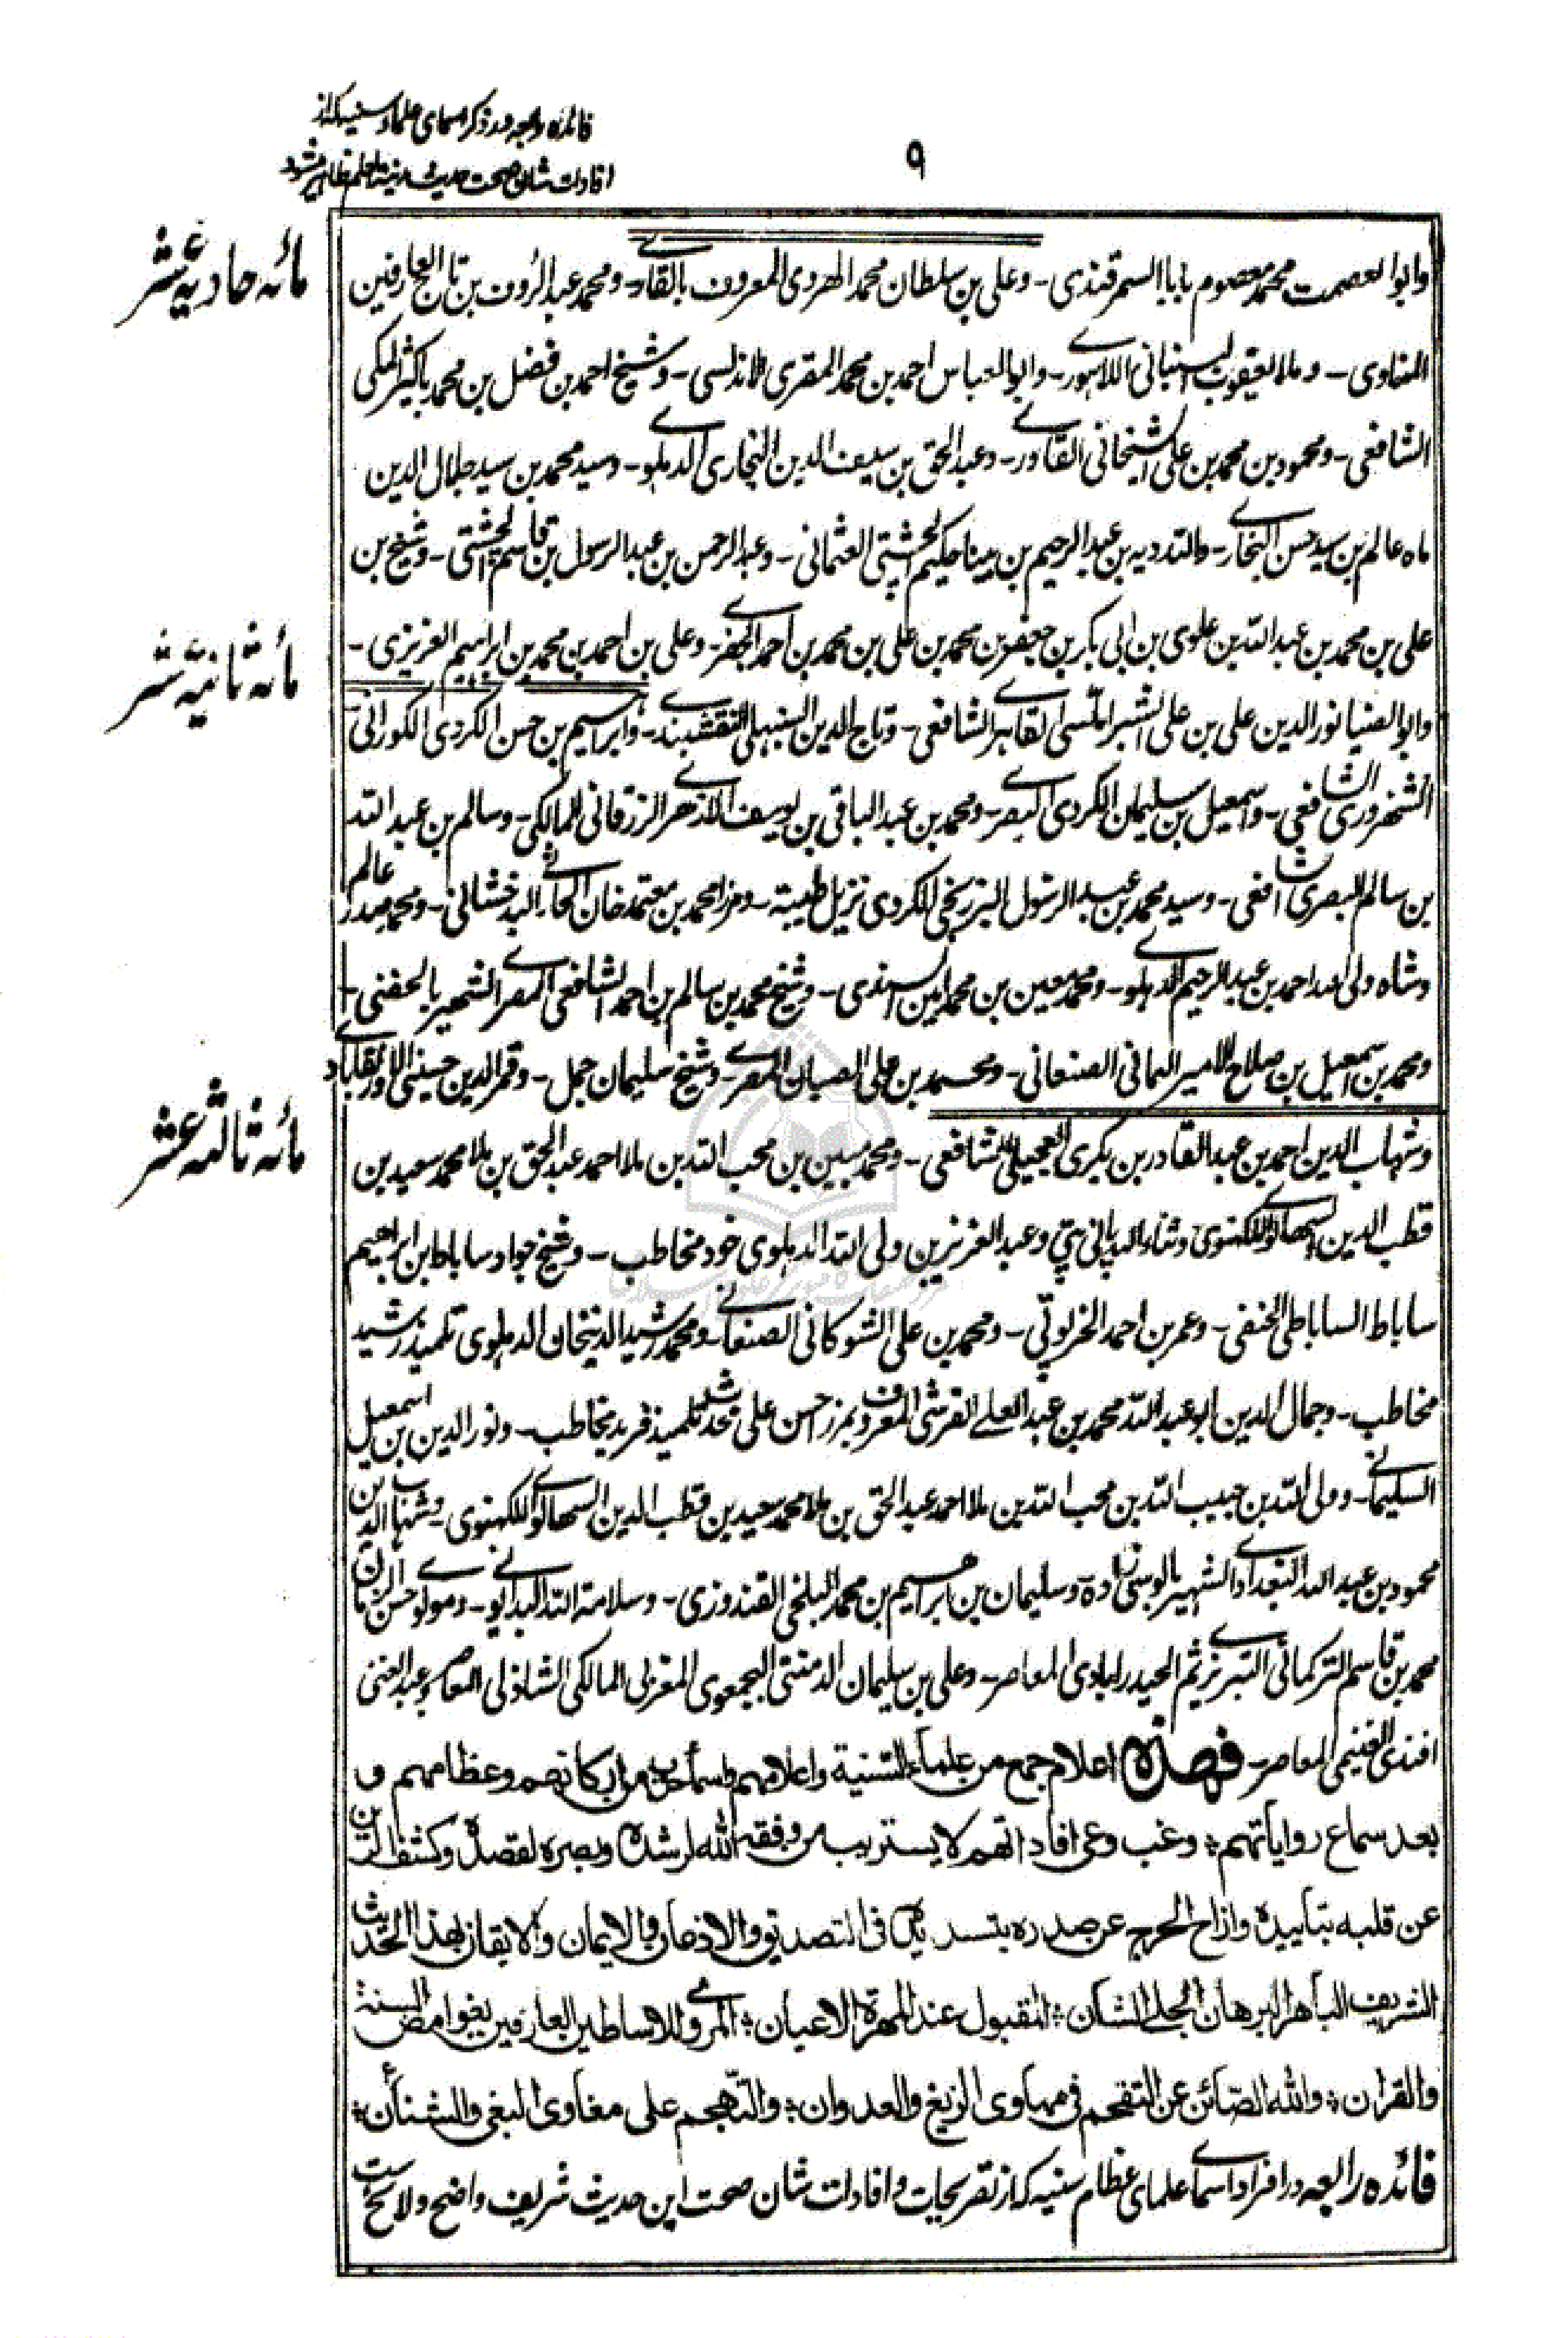 فائده رابعه در ذکر اسمای علماء سنیه که از
افادات شان صحت حدیث مدینة العلم ظاهر میشود
۹
مائه حادیة عشر
وابوالعصمت محمد معصوم بابا السمرقندی - وعلی بن سلطان محمد الهروی المعروف بالقاری - ومحمد عبدالرؤف بن تاج العارفین
المناوی - وملا یعقوب البنبانی اللاهوری - وابو العباس احمد بن محمد المقری الاندلسی - وشیخ احمد بن فضل بن محمد باکثیر المکی
الشافعی - ومحمود بن محمد بن علی الشیخانی القادری - وعبدالحق بن سیف الدین البخاری الدهلوی - وسید محمد بن سید جلال الدین
ماه عالم بن سید حسن البخاری - والله دیه بن عبدالرحیم بن بینا حکیم الچشتی العثمانی - وعبد الرحمن بن عبدالرسول بن قاسم الچشتی - وشیخ بن
علی بن محمد بن عبد الله بن علوی بن ابی بکر بن جعفر بن محمد بن علی بن محمد بن احمد الجفری - وعلی بن احمد بن محمد بن ابراهیم العزیزی -
مائه ثانیة عشر
وابوالضیا نورالدین علی بن علی الشبراملسی القاهری الشافعی - وتاج الدین السنبهلی النقشبندی - وابراهیم بن حسن الکردی الکورانی
الشهرزوری الشافعی - واسمعیل بن سلیمان الکردی البصری - ومحمد بن عبد الباقی بن یوسف الازهری الزرقانی المالکی - وسالم بن عبد الله
بن سالم البصری الشافعی - وسید محمد بن عبد الرسول البرزنجی الکردی نزیل طیبة - ومرزا محمد بن معتمد خان الحارثی البدخشانی - ومحمد صدر عالم
وشاه ولی الله احمد بن عبد الرحیم الدهلوی - ومحمد معین بن محمد امین السندی - وشیخ محمد بن سالم بن احمد الشافعی المصری الشهیر بالحفنی -
ومحمد بن اسمعیل بن صلاح الامیر الیمانی الصنعانی - ومحمد بن علی الصبان المصری - وشیخ سلیمان جمل - وقمرالدین حسینی الاورنقابادی
مائه ثالثه عشر
وشهاب الدین احمد بن عبد القادر بن بکری العجیلی الشافعی - ومحمد مبین بن محب الله بن ملا احمد عبد الحق بن ملا محمد سعید بن
قطب الدین السهالوی اللکهنوی وثناء الله پانی پتی وعبد العزیز بن ولی الله الدهلوی خود مخاطب - وشیخ جواد ساباط ابن ابراهیم
ساباط الساباطی الحنفی - وعمر بن احمد الخرپوتی - ومحمد بن علی الشوکانی الصنعانی - ومحمد رشید الدینخان الدهلوی تلمیذ رشید
مخاطب - وجمال الدین ابو عبد الله محمد بن عبد العلی القرشی المعروف بمرزا حسن علی محدث تلمیذ فرید مخاطب - ونور الدین بن اسمعیل
السلیمانی - وولی الله بن حبیب الله بن محب الله بن ملا احمد عبد الحق بن ملا محمد سعید بن قطب الدین السهالوی اللکهنوی - وشهاب الدین
محمود بن عبد الله البغدادی الشهیر بالوسی زاده وسلیمان بن ابراهیم بن محمد البلخی القندوزی - وسلامة الله البدایونی - ومولوی حسن الزمان بن
محمد بن قاسم الترکمانی التبریزی ثم الحیدرابادی المعاصر - وعلی بن سلیمان الدمنتی البجمعوی المغربی المالکی الشاذلی المعاصر وعبد الغنی
افندی الغنیمی المعاصر - فهذه اعلام جمع من علماء السنیة واعلامهم واسماء من ارکانهم وعظامهم و
بعد سماع رواياتهم ؛ وغب وعی افاداتهم لا یستریب من وفقه الله لرشده وبصره لقصده وکشف الرین
عن قلبه بتأییده وازاح الحرج عن صدره بتسدیده فی التصدیق والاذعان والایمان والایقان بهذا الحدیث
الشریف الباهر البرهان الجلی الشان ؛ المقبول عند المهرة الاعیان ؛ المروی للاساطین العارفین بغوامض السنة
والقران ؛ والله الصائن عن التقحم فی مهاوی الزیغ والعدوان ؛ والتهجم علی مغاوی البغی والشنان ؛
فائده رابعه در افراد اسمای علمای عظام سنیه که از تصریحات وافادات شان صحت این حدیث شریف واضح ولائح ست